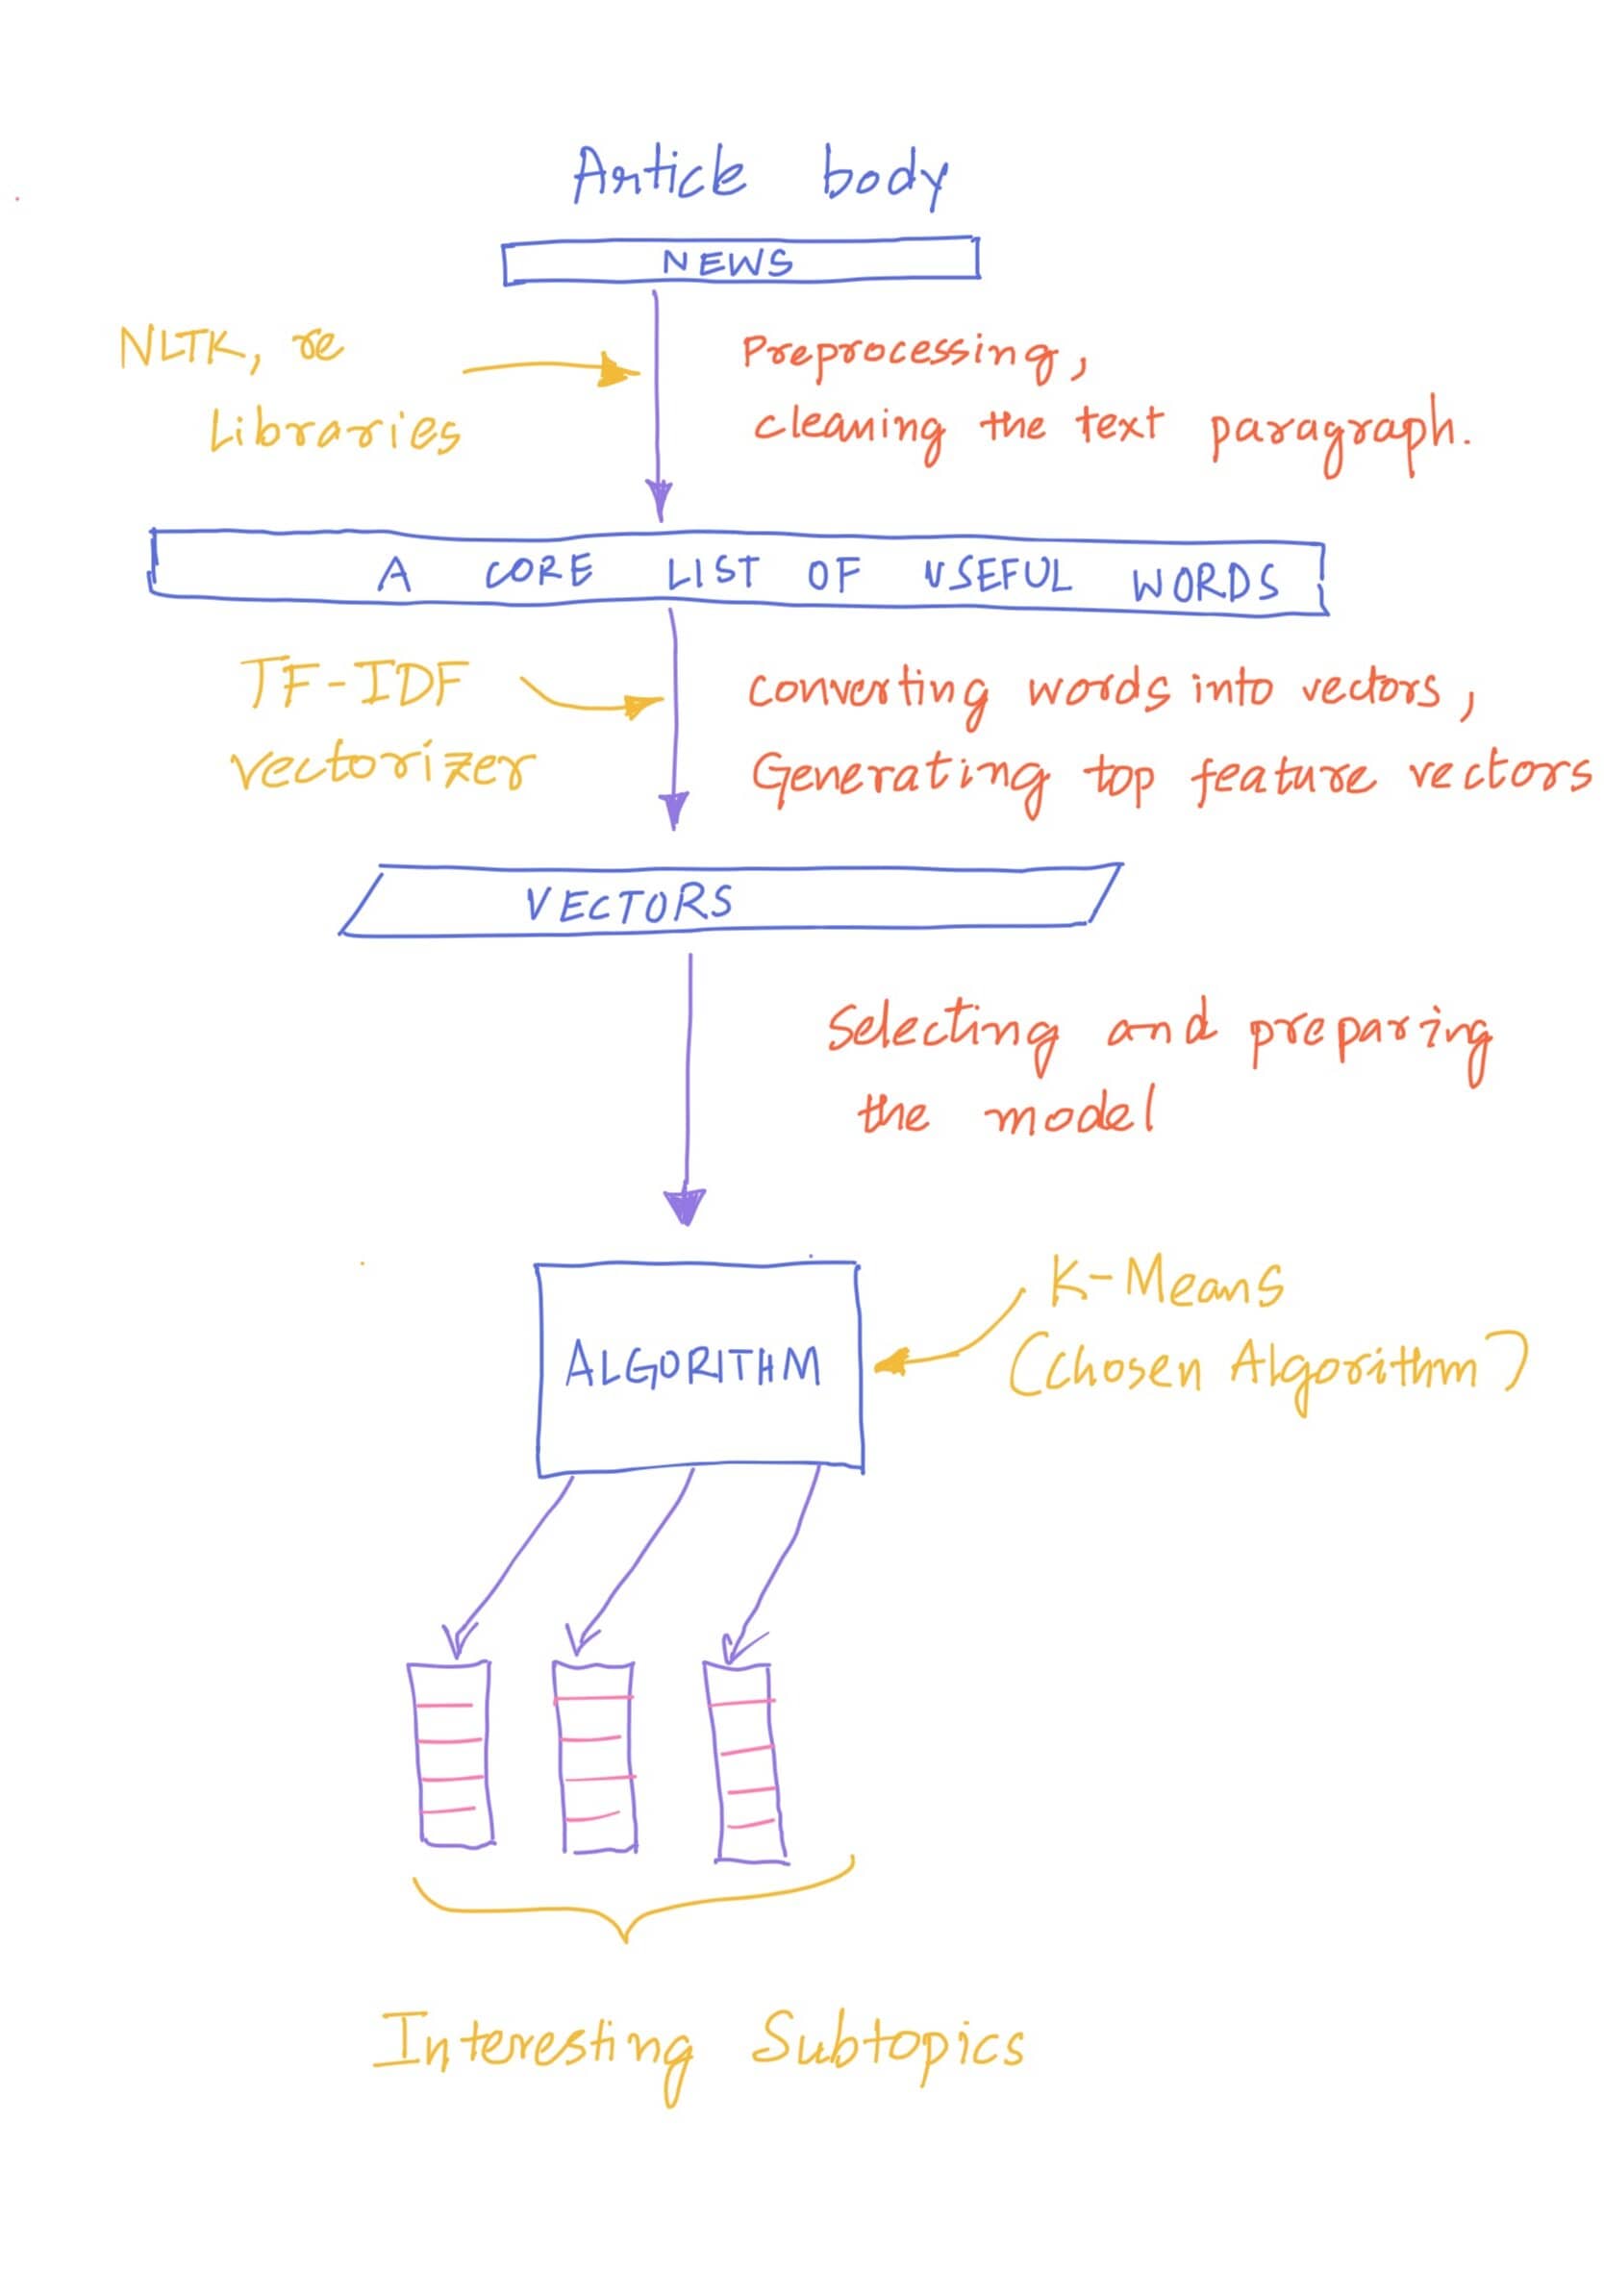 Article body
NEWS
NLTK, re
Libraries
Preprocessing,
cleaning the text paragraph.
A CORE LIST OF USEFUL WORDS
TF-IDF
vectorizer
converting words into vectors,
Generating top feature vectors
VECTORS
Selecting and preparing
the model
ALGORITHM
K-Means
(Chosen Algorithm)
Interesting Subtopics